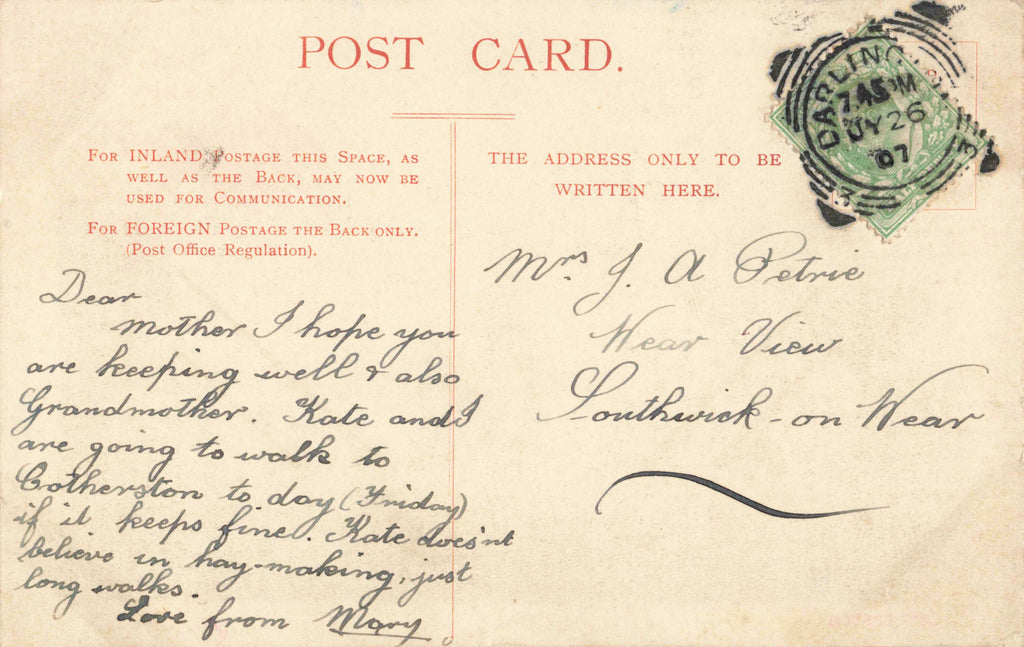 POST CARD.
For INLAND Postage this Space, as
well as the Back, may now be
used for Communication.
For FOREIGN Postage the Back only.
(Post Office Regulation).
THE ADDRESS ONLY TO BE
WRITTEN HERE.
DARLING
7.45 PM
JY 26
07
Mrs J. A Petrie
Wear View
Southwick-on Wear
Dear
mother I hope you
are keeping well & also
Grandmother. Kate and I
are going to walk to
Cotherston to day (Friday)
if it keeps fine. Kate does'nt
believe in hay-making, just
long walks.
Love from Mary